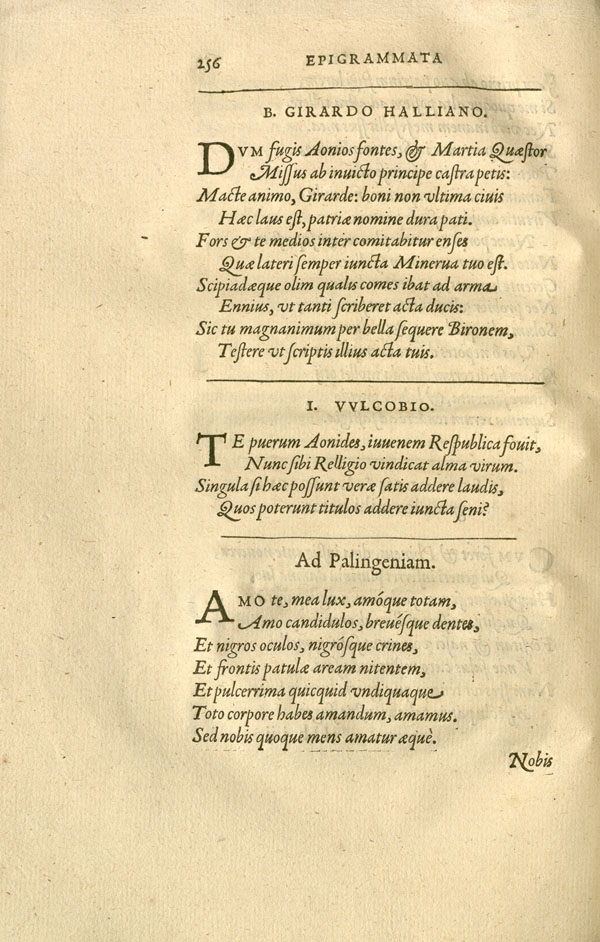 256 EPIGRAMMATA
B. GIRARDO HALLIANO.
DVM fugis Aonios fontes, & Martia Quæstor
Missus ab inuicto principe castra petis:
Macte animo, Girarde: boni non vltima ciuis
Hæc laus est, patriæ nomine dura pati.
Fors & te medios inter comitabitur enses
Quæ lateri semper iuncta Minerua tuo est.
Scipiadæque olim qualis comes ibat ad arma
Ennius, vt tanti scriberet acta ducis:
Sic tu magnanimum per bella sequere Bironem,
Testere vt scriptis illius acta tuis.
I. VVLCOBIO.
TE puerum Aonides, iuuenem Respublica fouit,
Nunc sibi Relligio vindicat alma virum.
Singula si hæc possunt veræ satis addere laudis,
Quos poterunt titulos addere iuncta seni?
Ad Palingeniam.
AMO te, mea lux, amóque totam,
Amo candidulos, breuésque dentes,
Et nigros oculos, nigrósque crines,
Et frontis patulæ aream nitentem,
Et pulcerrima quicquid vndiquaque
Toto corpore habes amandum, amamus.
Sed nobis quoque mens amatur æquè.
Nobis